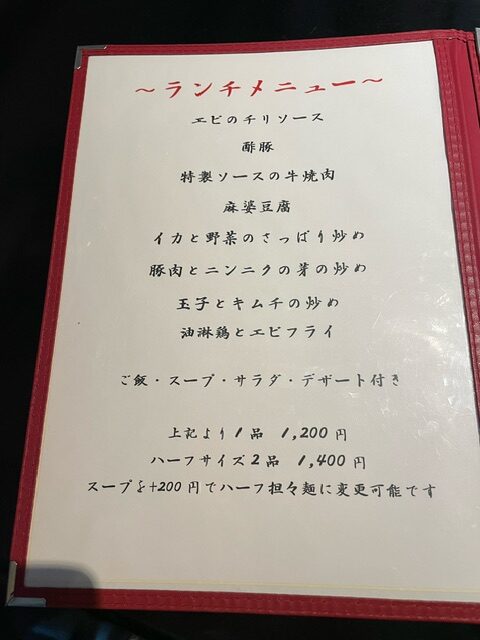 ～ランチメニュー～
エビのチリソース
酢豚
特製ソースの牛焼肉
麻婆豆腐
イカと野菜のさっぱり炒め
豚肉とニンニクの芽の炒め
玉子とキムチの炒め
油淋鶏とエビフライ
ご飯・スープ・サラダ・デザート付き
上記より1品 1,200円
ハーフサイズ2品 1,400円
スープを+200円でハーフ担々麺に変更可能です